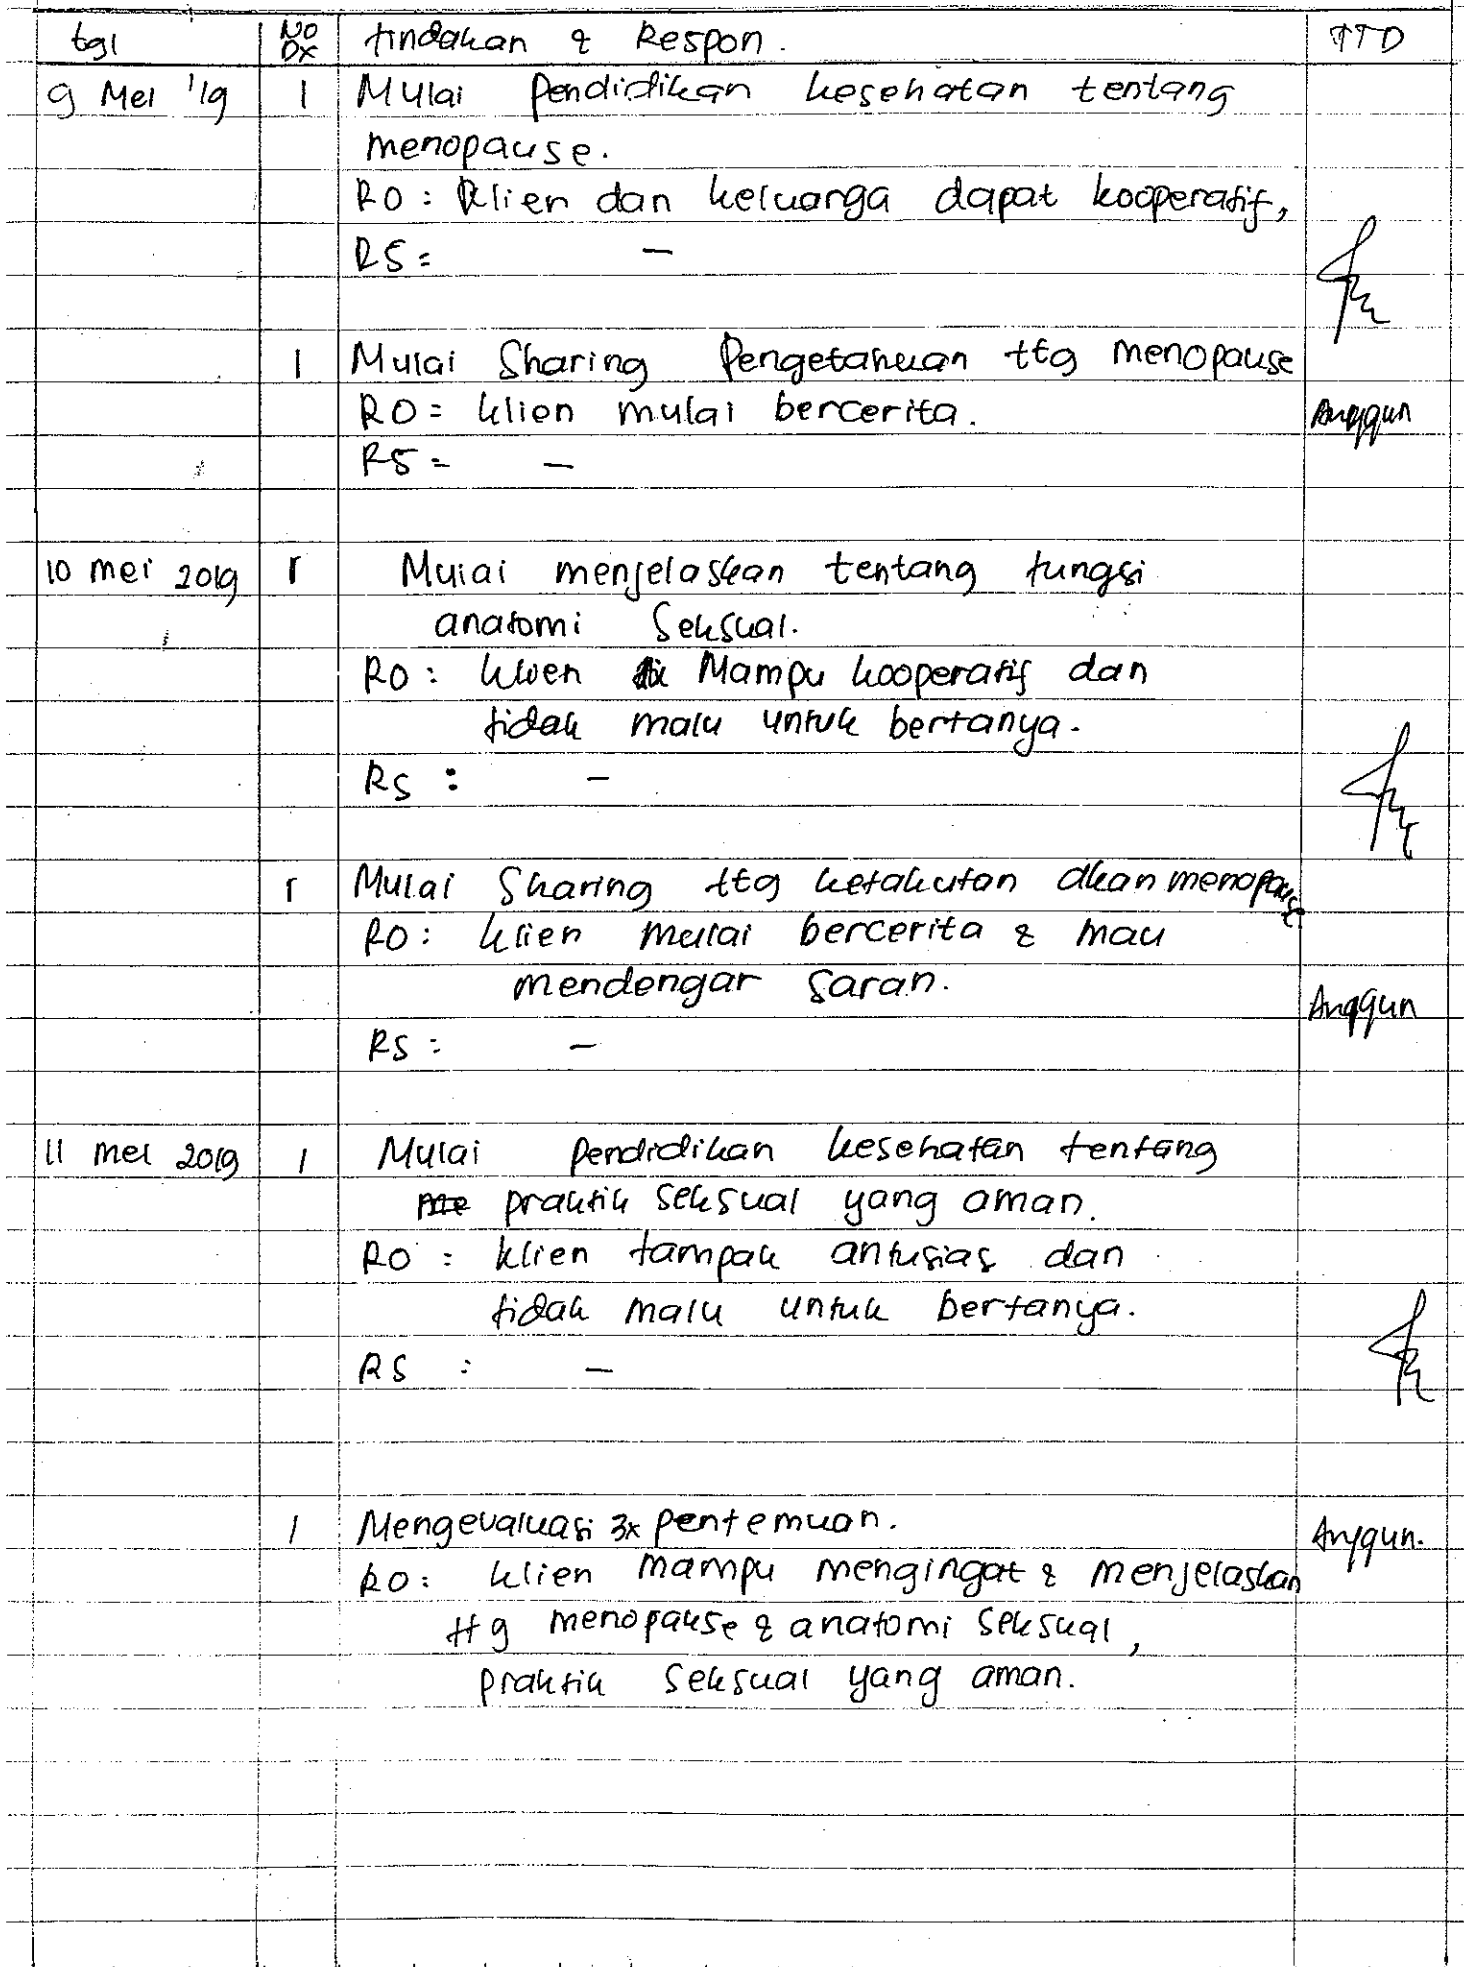 tgl No Dx tindakan & Respon. TTD
9 Mei '19 1 Mulai Pendidikan kesehatan tentang
menopause.
RO : Klien dan keluarga dapat kooperatif,
RS = -
1 Mulai Sharing Pengetahuan ttg menopause
RO = klien mulai bercerita. Anggun
RS = -
10 mei 2019 1 Mulai menjelaskan tentang fungsi
anatomi Seksual.
RO : klien Mampu kooperatif dan
tidak malu untuk bertanya.
RS : -
1 Mulai Sharing ttg ketakutan akan menopause
RO : klien mulai bercerita & mau
mendengar Saran. Anggun
RS : -
11 mei 2019 1 Mulai pendidikan kesehatan tentang
me praktik seksual yang aman.
RO : klien tampak antusias dan
tidak malu untuk bertanya.
RS : -
1 Mengevaluasi 3x pertemuan. Anggun.
RO : klien mampu mengingat & menjelaskan
ttg menopause & anatomi seksual,
praktik seksual yang aman.